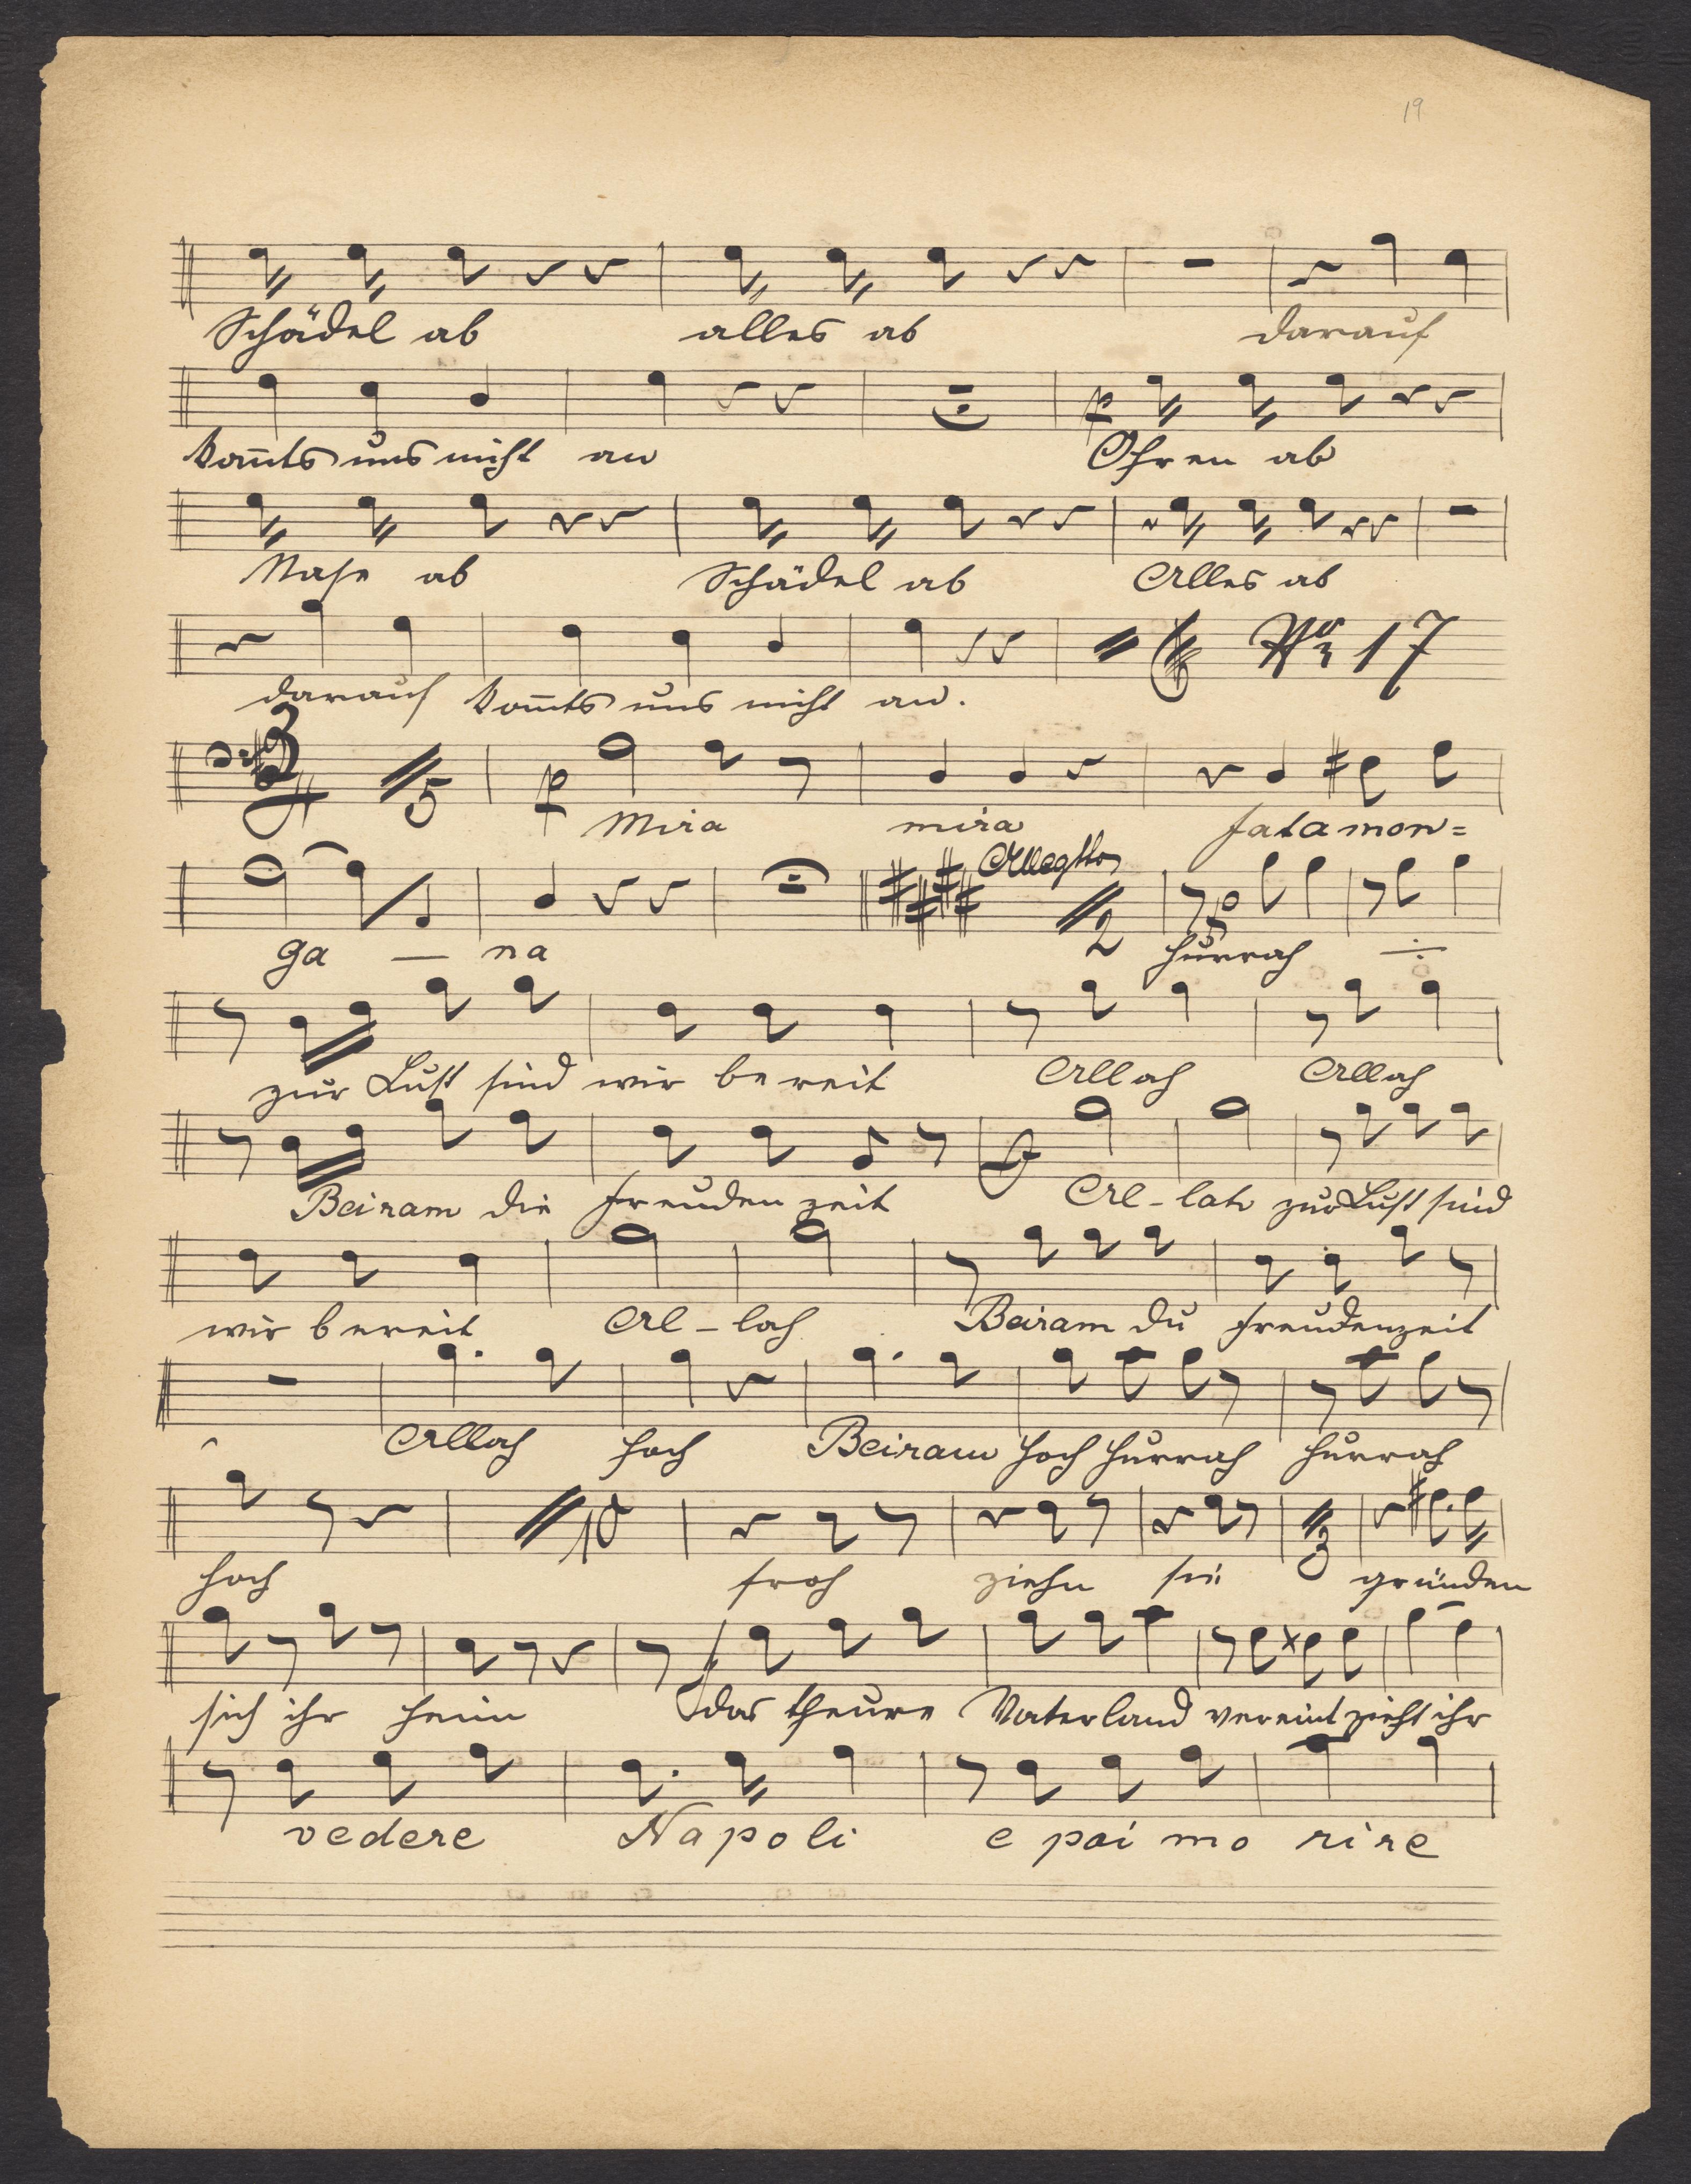 19
Schädel ab alles ab darauf
kom̄ts uns nicht an Ohren ab
p
Nase ab Schädel ab Alles ab
No 17
darauf kom̄ts uns nicht an.
5 p
Mira mira fata mon=
Allegtto
2
ga — na hurrah ÷
zur Lust sind wir bereit Allah Allah
Beiram die Freudenzeit Al-lah zur Lust sind
wir bereit Al-lah Beiram du Freudenzeit
Allah hoch Beiram hoch hurrah hurrah
10 3
hoch froh ziehn sie gründen
sich ihr Heim das theure Vaterland vereint zieht ihr
vedere Napoli e poi mo rire